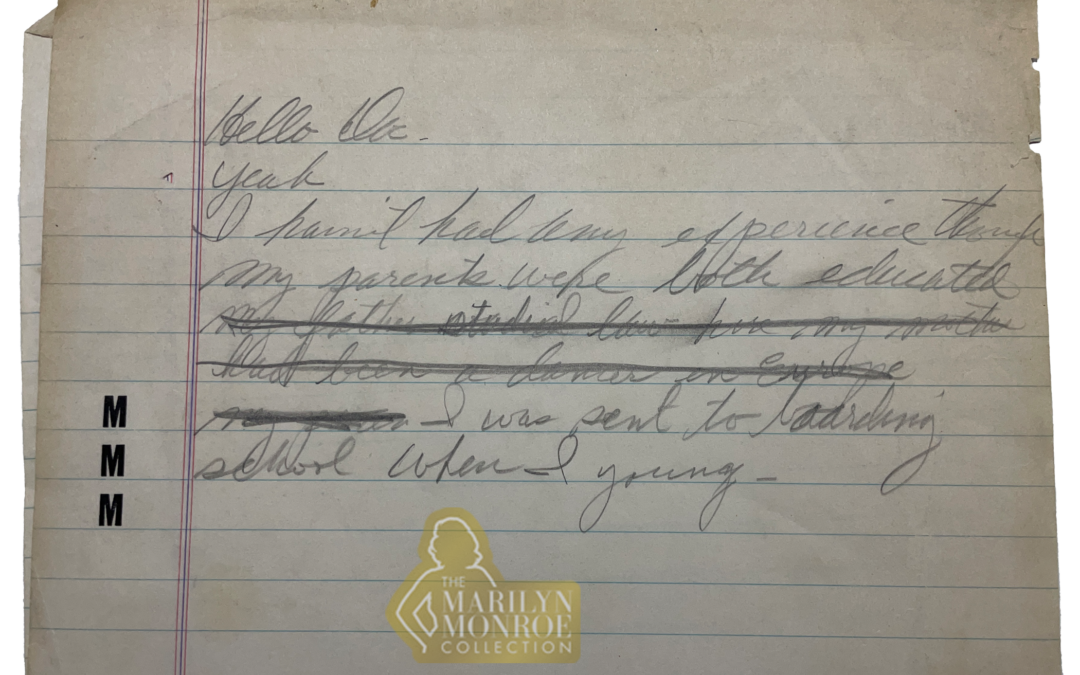 Hello Doc.
Yeah
I havn't had any experience though
My parents were both educated
My father studied law - my mother
had been a dancer in Europe
I was sent to boarding
school when I young -
M
M
M
THE
MARILYN
MONROE
COLLECTION